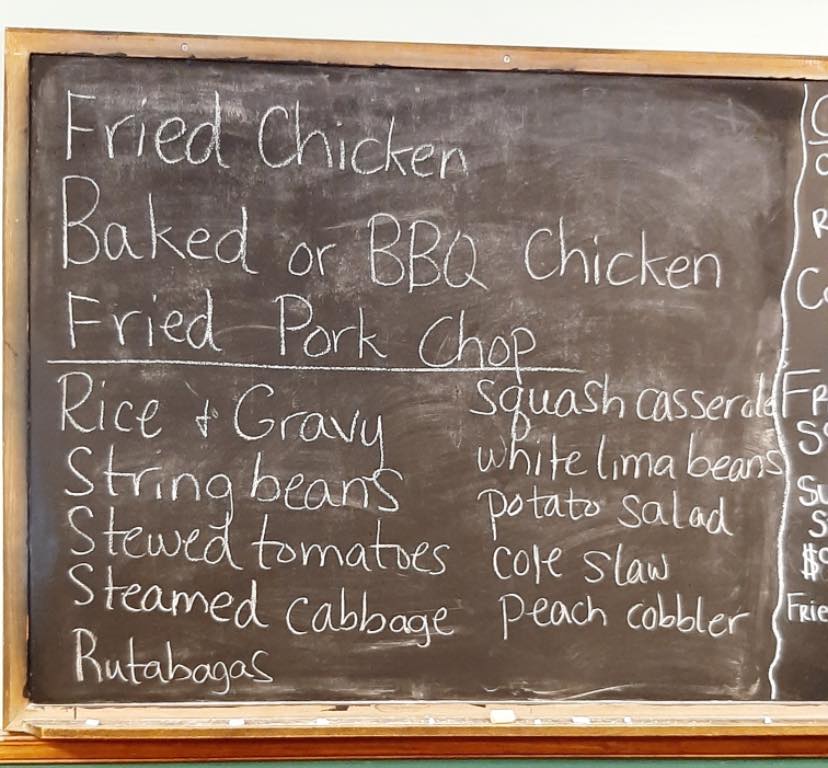 Fried Chicken
Baked or BBQ Chicken
Fried Pork Chop
Rice & Gravy
String beans
Stewed tomatoes
Steamed cabbage
Rutabagas
Squash casserole
white lima beans
potato salad
cole slaw
peach cobbler